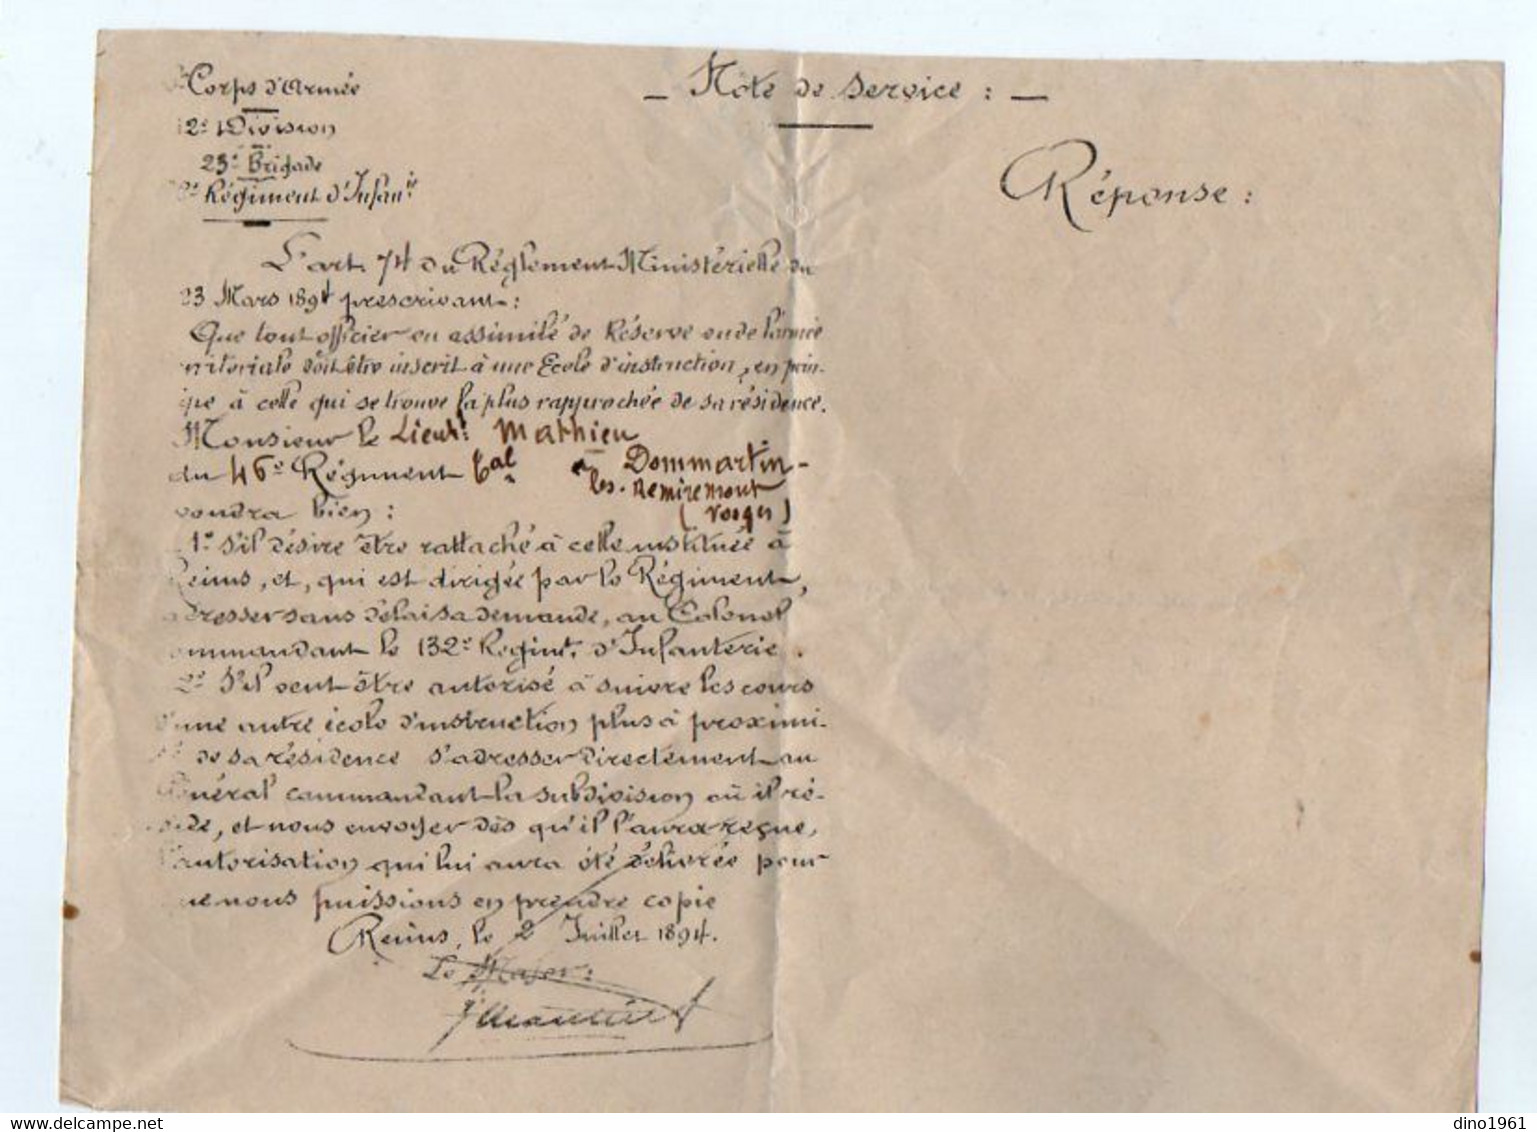 Corps d'Armée
12e Division
23e Brigade
Régiment d'Infanie
Note de Service :
Réponse :
L'art. 74 du Réglement Ministérielle du
23 Mars 1894 prescrivant :
Que tout officier ou assimilé de Réserve ou de l'armée
rritoriale doit être inscrit à une Ecole d'instruction, en prin-
ipe à celle qui se trouve la plus rapprochée de sa résidence.
Monsieur le Lieut. Mathieu
du 46e Régiment tal à Dommartin-
les-Remiremont
(Vosges)
voudra bien :
1° S'il désire être rattaché à celle instituée à
Reims, et, qui est dirigée par le Régiment,
adresser sans délai sa demande, au Colonel
ommandant le 132e Regimt. d'Infanterie.
2° S'il veut être autorisé à suivre les cours
d'une autre école d'instruction plus à proximi-
té de sa résidence s'adresser directement au
Général commandant la subdivision où il ré-
side, et nous envoyer dès qu'il l'aura reçue,
l'autorisation qui lui aura été délivrée pour
que nous puissions en prendre copie
Reims, le 2 Juillet 1894.
Le Major :
dino1961